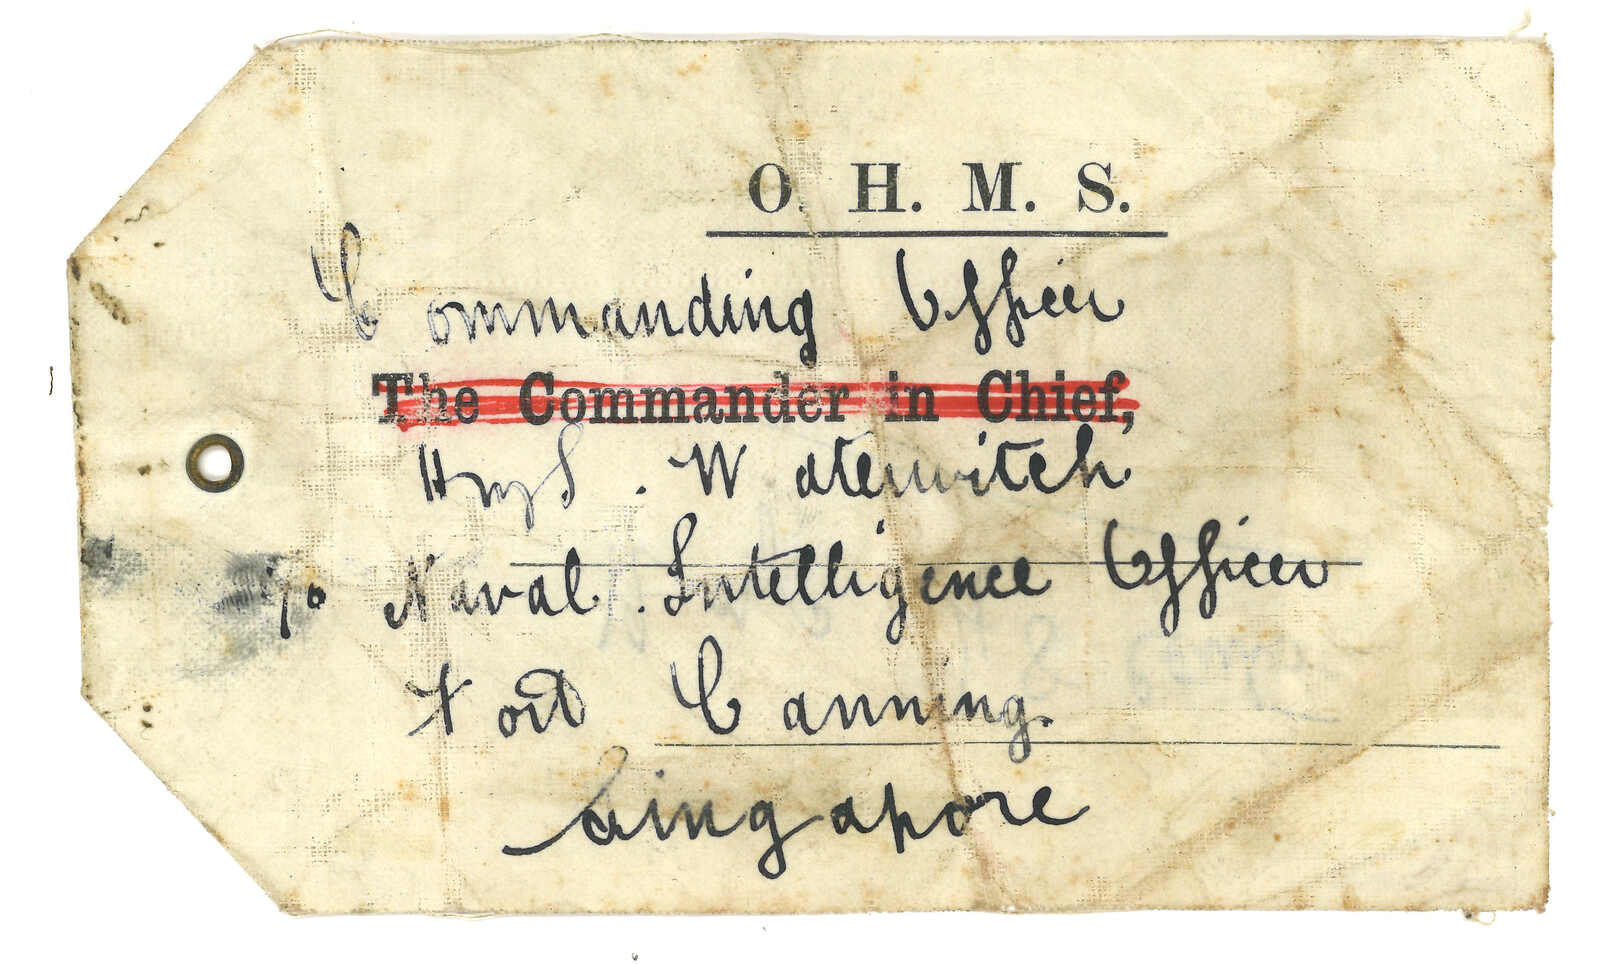 O. H. M. S.
Commanding Officer
The Commander in Chief,
HMS. Waterwitch
℅ Naval. Intelligence Officer
Fort Canning.
Singapore